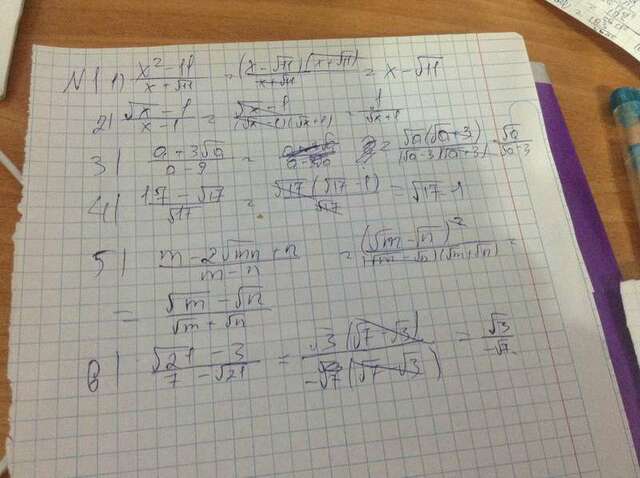 N1 1) (x² - 11)/(x + √11) = ((x - √11)(x + √11))/(x + √11) = x - √11
2) (√x - 1)/(x - 1) = (√x - 1)/((√x - 1)(√x + 1)) = 1/(√x + 1)
3) (a + 3√a)/(a - 9) = (√a(√a + 3))/((√a - 3)(√a + 3)) = √a/(√a - 3)
4) (17 - √17)/√17 = (√17(√17 - 1))/√17 = √17 - 1
5) (m - 2√mn + n)/(m - n) = (√m - √n)²/((√m - √n)(√m + √n)) =
= (√m - √n)/(√m + √n)
6) (√21 - 3)/(7 - √21) = (√3(√7 - √3))/(-√7(√7 - √3)) = √3/-√7